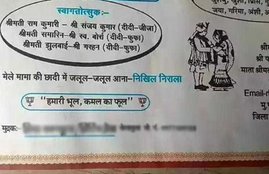 स्वागतोत्सुक:-
श्रीमती राम कुमारी - श्री संजय कुमार (दीदी-जीजा)
श्रीमती समारिन - श्री स्व. बोर्स (दीदी-फुफा)
श्रीमती झुलबाई - श्री गरहन (दीदी-फुफा)
मेले मामा की छादी में जलूल-जलूल आना-निखिल निराला
"हमारी भूल, कमल का फूल"
मुद्रक:-
जय
जया, गरिमा, अंशी,
श्री
माता श्रीम
Email-
जिला